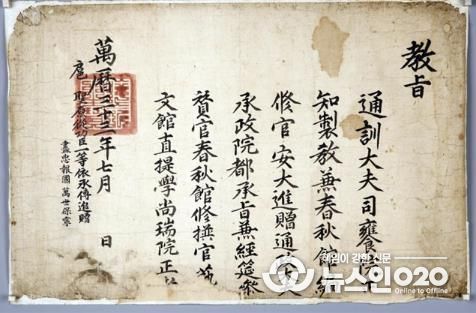 教旨
通訓大夫司饔
知製教兼春秋館編
修官安大進贈通
承政院都承旨兼經筵參
贊官春秋館修撰官藝
文館直提學尚瑞院正
萬曆三十三年七月 日
扈聖原從功臣一等依承傳追贈
盡忠報國 萬世保寧
책임이 강한 신문
뉴스인020
Online to Offline